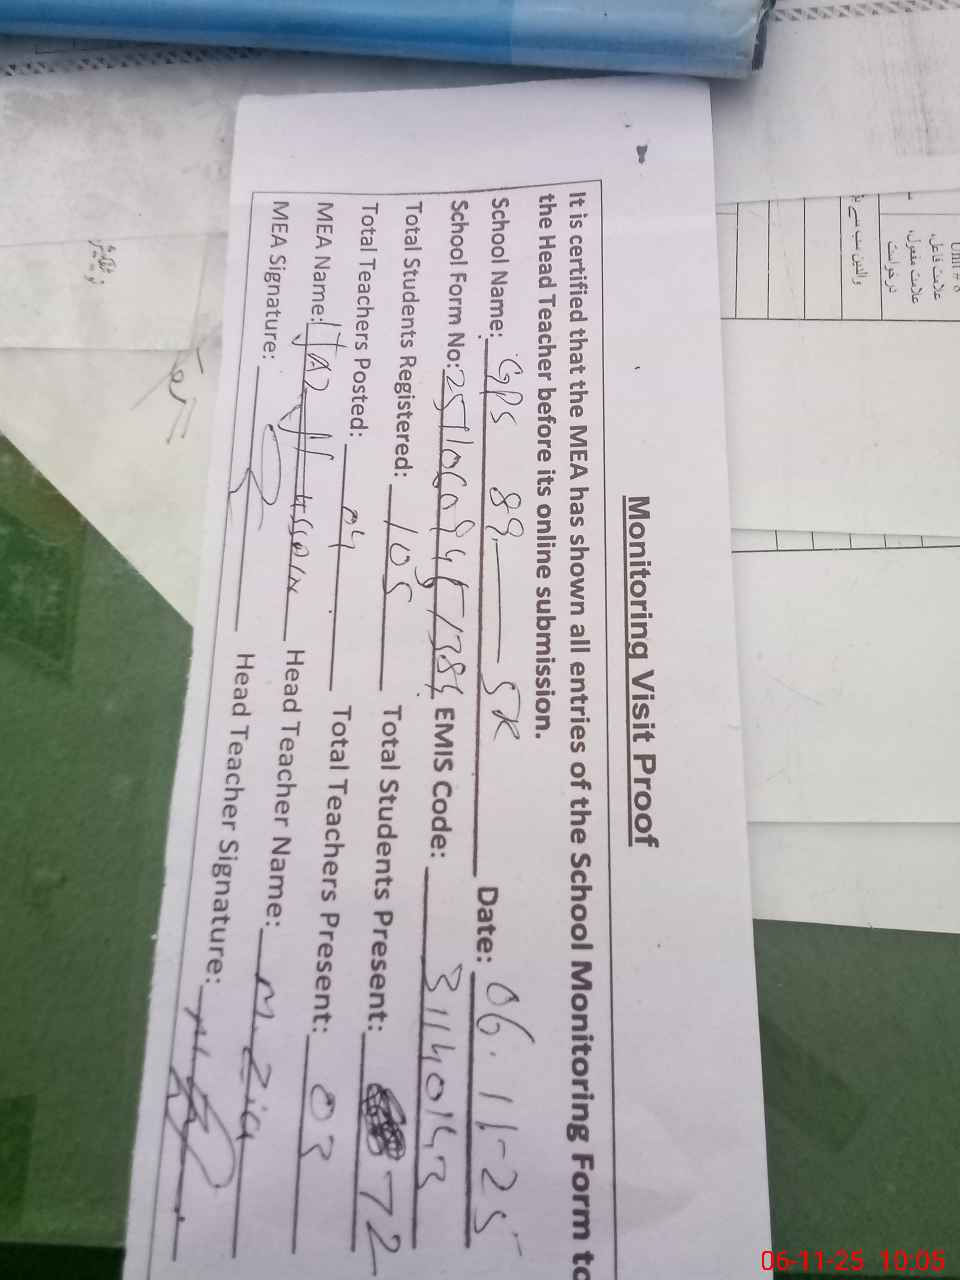 Monitoring Visit Proof
It is certified that the MEA has shown all entries of the School Monitoring Form to
the Head Teacher before its online submission.
School Name: GPS 89 SR Date: 06.11-25
School Form No: EMIS Code: 31140143
Total Students Registered: 105 Total Students Present: 72
Total Teachers Posted: 04 Total Teachers Present: 03
MEA Name: Hussain Head Teacher Name: M. Zia
MEA Signature: Head Teacher Signature:
Unit # 8
علامت فاعل،
علامت مفعول،
درخواست
والدین سب سے
06-11-25 10:05